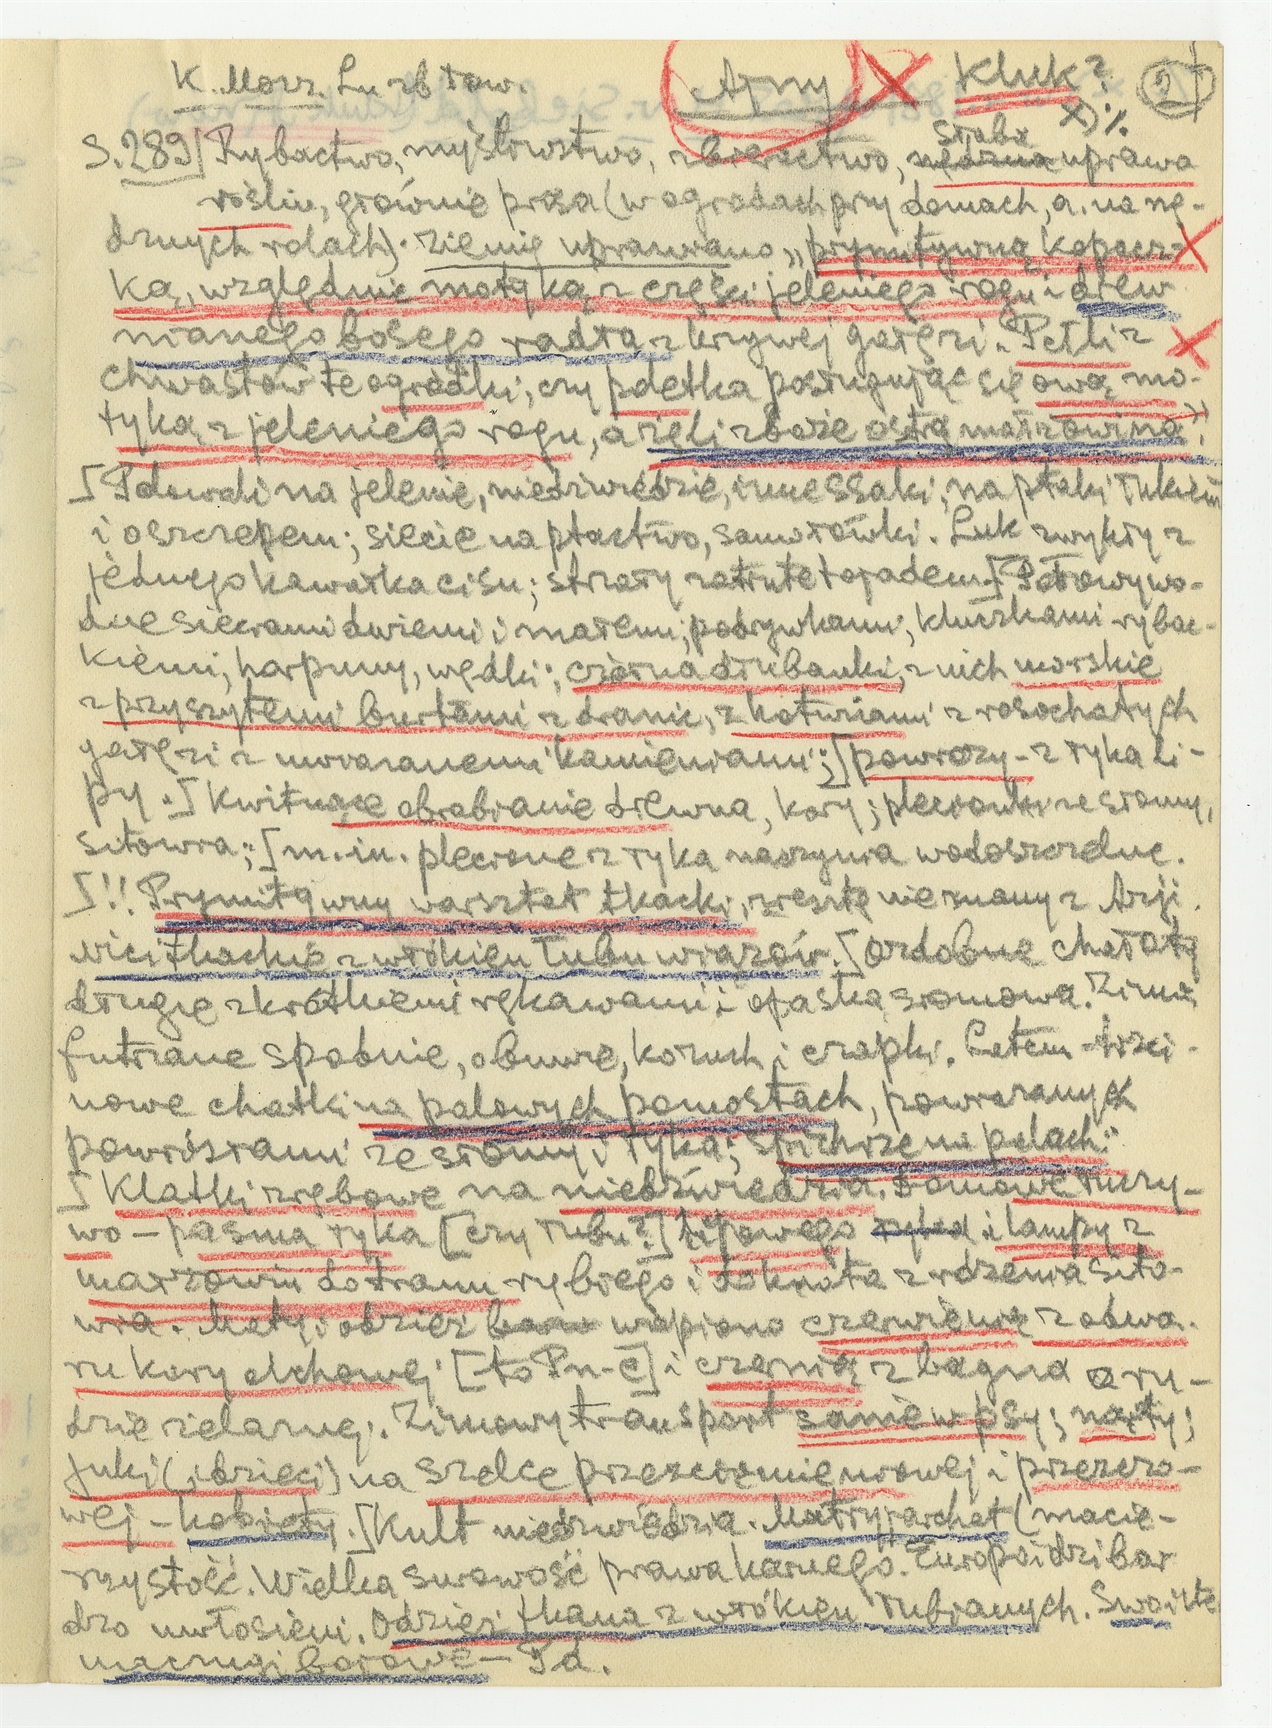 K. Mosz. Lu zb tow. Ajny Kluk? 2
x) %
słaba
S.289/ Rybactwo, myślistwo, zbieractwo, nędzna uprawa
roślin, głównie prosa (w ogrodach przy domach, a. na nę-
dznych rolach). Ziemię uprawiano „prymitywną kopacz-
ką, względnie motyką z części jeleniego rogu i drew
nianego bosego radła z krzywej gałęzi. Pełli z
chwastów te ogródki, czy poletka posługując się ową mo-
tyką z jeleniego rogu, a żęli zboże ostrą małżowiną”.
[Polowali na jelenie, niedźwiedzie, inne ssaki, na ptaki łukiem
i oszczepem; siecie na ptactwo, samołówki. Łuk zwykły z
jednego kawałka cisu; strzały zatrute tojadem.] Połowy wo-
dne sieciami dużemi i małemi, podrywkami, kluczkami rybac-
kiemi, harpuny, wędki; czółna dłubanki, z nich morskie
z przyszytemi burtami z dranic, z kotwiami z rosochatych
gałęzi z uwiązanemi kamieniami;] powrozy - z łyka li-
py.] Kwitnące obrabianie drewna, kory; plecionki ze słomy,
sitowia; [m. in. plecione z łyka naczynia wodoszczelne.
[!! Prymitywny warsztat tkacki, zresztą nie znany z Azji.
nici tkackie z włókien łubu wiązów. [Ozdobne chałaty
długie z krótkiemi rękawami i opaską słomową. Zimą
futrzane spodnie, obuwie, kożuch i czapki. Latem - trzci-
nowe chatki na palowych pomostach, powiązanych
powrósłami ze słomy i łyka; spichrze na palach.
[Klatki zrębowe na niedźwiedzia. Domowe łuczy-
wo - pasma łyka [czy łubu?] lipowego i lampy z
małżowin do tranu rybiego i do knota z rdzenia sito-
wia. Maty i odzież wapiono czerwienią z odwa-
ru kory olchowej [to Pn-E] i czernią z bagna o ru-
dzie żelaznej. Zimowy transport sanie w psy; narty;
juki (i dzieci) na szelce przezciemieniowej i przezczo-
łowej - kobiety. [Kult niedźwiedzia. Matryjarchat (macie-
rzystość. Wielka surowość prawa karnego. Europoidzi bar
dzo uwłosieni. Odzież tkana z włókien łubianych. Swoiste
maczugi bojowe - Pd.